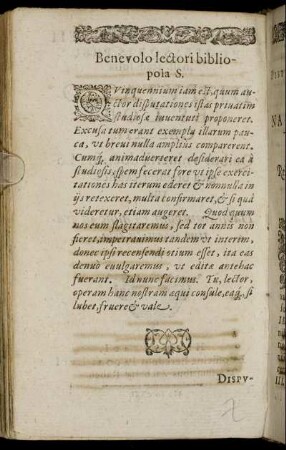 Benevolo lectori biblio-
pola S.
QVinquennium iam est, quum au-
ctor disputationes istas priuatim
studiosæ iuuentuti proponeret.
Excusa tum erant exempla illarum pau-
ca, vt breui nulla amplius comparerent.
Cumq́, animaduerteret desiderari ea à
studiosis, spem fecerat fore vt ipse exerci-
tationes has iterum ederet & nonnulla in
ijs retexeret, multa confirmaret, & si quà
videretur, etiam augeret. Quod quum
nos eum flagitaremus, sed tot annis non
fieret, impetrauimus tandem vt interim,
donec ipsi recensendi otium esset, ita eas
denuò euulgaremus, vt editæ antehac
fuerant. Id nunc fecimus. Tu, lector,
operam hanc nostram æqui consule, eaq́, si
lubet, fruere & vale.
DISPV-